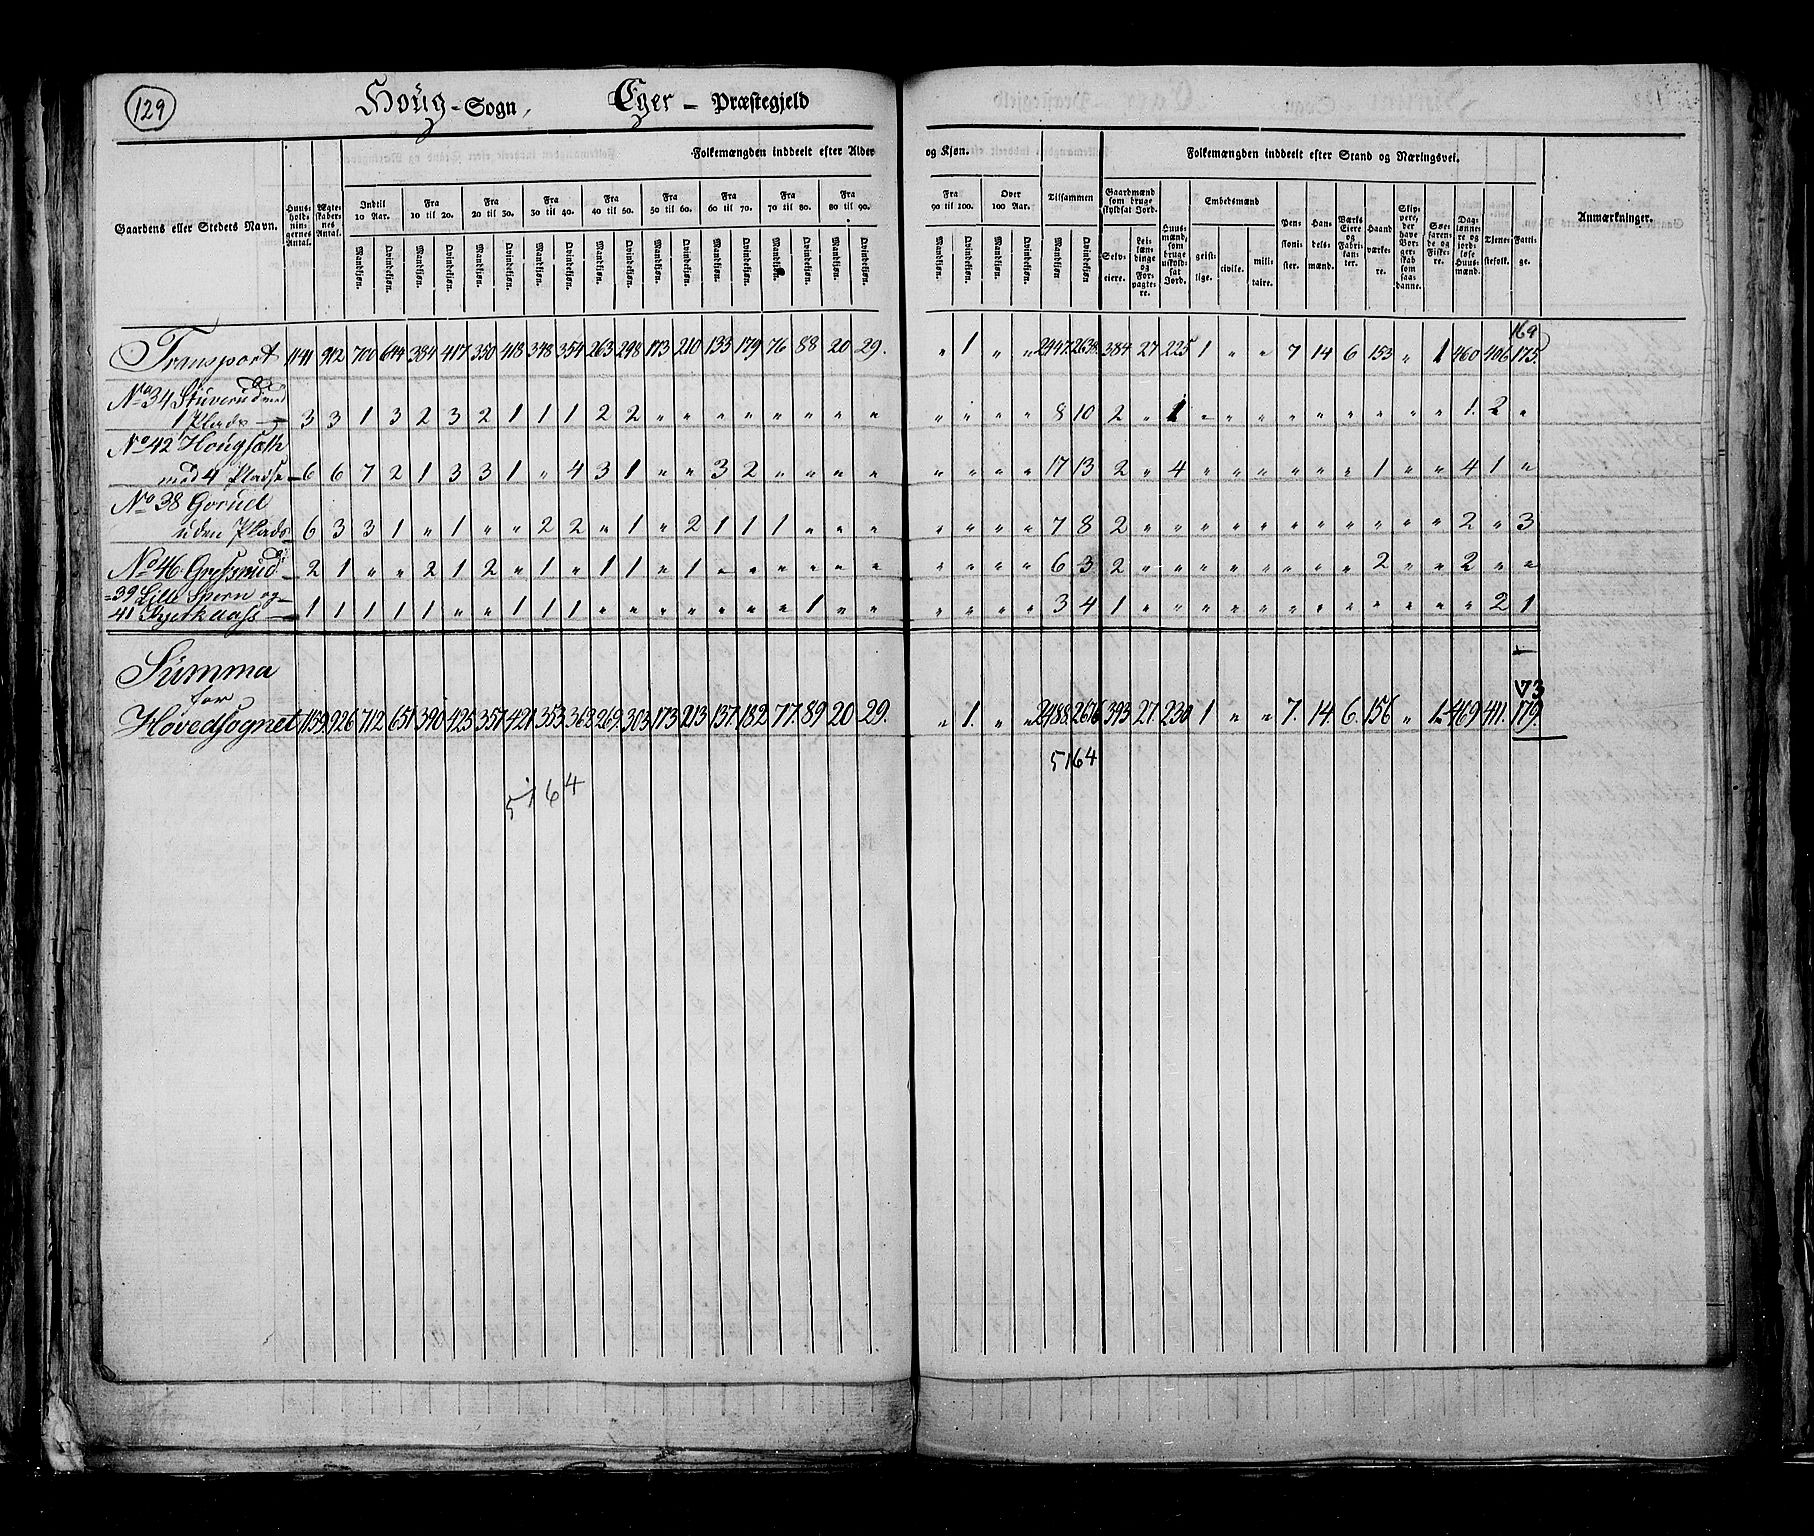 129
Houg - Sogn, Eger - Præstegjeld
Folkemængden inddeelt efter Alder og Kjøn.
Folkemængden inddeelt efter Stand og Næringsvei.
Gaardens eller Stedets Navn.
Huusholdningernes Antal.
Ægteskabernes Antal.
Indtil 10 Aar. Fra 10 til 20. Fra 20 til 30. Fra 30 til 40. Fra 40 til 50. Fra 50 til 60. Fra 60 til 70. Fra 70 til 80. Fra 80 til 90. Fra 90 til 100. Over 100 Aar. Tilsammen
Mandkjøn. Qvindekjøn. Mandkjøn. Qvindekjøn. Mandkjøn. Qvindekjøn. Mandkjøn. Qvindekjøn. Mandkjøn. Qvindekjøn. Mandkjøn. Qvindekjøn. Mandkjøn. Qvindekjøn. Mandkjøn. Qvindekjøn. Mandkjøn. Qvindekjøn. Mandkjøn. Qvindekjøn. Mandkjøn. Qvindekjøn. Mandkjøn Qvindekjøn
Gaardmænd som bruge skyldsat Jord.
Selveiere.
Leilændinge og Forpagtere.
Huusmænd, som bruge uskyldsat Jord.
Embedsmænd
geistlige.
civile.
militaire.
Pensionister.
Handelsmænd.
Værks Eiere og Fabrikanter.
Haandværkere.
Skippere, der have Borgerskab som saadanne.
Søefarende og Fiskere.
Daglønnere og jordløse Huusmænd.
Tjenestefolk.
Fattige.
Anmærkninger.
169
Transport 1141 912 700 644 384 417 350 418 348 354 263 298 173 210 133 179 76 88 20 29. " 1 " " 2447. 2638. 384 27 225 1 " " 7 14 6 153 " 1 460 406 175.
No 34 Stuverud med
1 Plads 3 3 1 3 2 3 2 1 1 1 2 2 " " " " " " " " " " " " 8 10 2 " 1 " " " " " " " " " 1. 2 "
No 42 Hougsæth
med 4 Pladse 6 6 7 2 1 3 3 1 " 4 3 1 " " 3 2 " " " " " " " " 17 13 2 " 4 " " " " " " 1 " " 4 1 "
No 38 Gorud
uden Plads 6 3 3 1 " 1 " " 2 2 " 1 " 2 1 1 1 " " " " " " " 7 8 2 " " " " " " " " " " " 2 " 3
No 46 2 1 " " 2 1 2 " 1 " 1 1 " 1 " " " " " " " " " " 6 3 2 " " " " " " " " 2 " " 2 " "
" 39 Lille og
41 1 1 1 1 1 1 " " 1 1 1 " " " " " " 1 " " " " " " 3 4 1 " " " " " " " " " " " " 2 1
Summa
for
173
Hovedsognet 1159. 926 712 651 390 425 357 421 353 363 269 303 173 213 137 182 77. 89 20 29. " 1. " " 2488. 2676 393 27. 230 1 " " 7. 14. 6. 156 " 1. 469 411. 179.
5164
5164